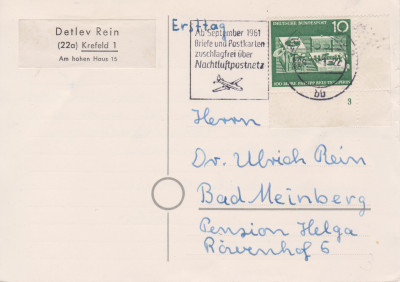 Detlev Rein
(22a) Krefeld 1
Am hohen Haus 15
Ersttag
Ab September 1961
Briefe und Postkarten
zuschlagfrei über
Nachtluftpostnetz
DEUTSCHE BUNDESPOST
10
bb
3
Herrn
Dr. Ulrich Rein
Bad Meinberg
Pension Helga